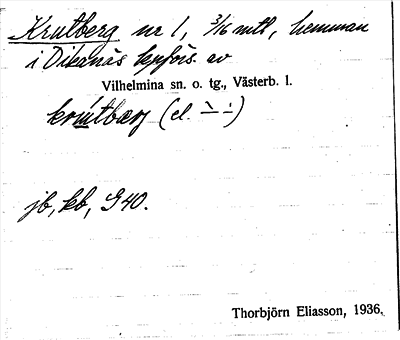 Krutberg nr 1, 3/16 mtl, hemman
i Dikanäs kpförs. av
Vilhelmina sn. o. tg., Västerb. l.
(el.
jb, kb, G 40.
Thorbjörn Eliasson, 1936.